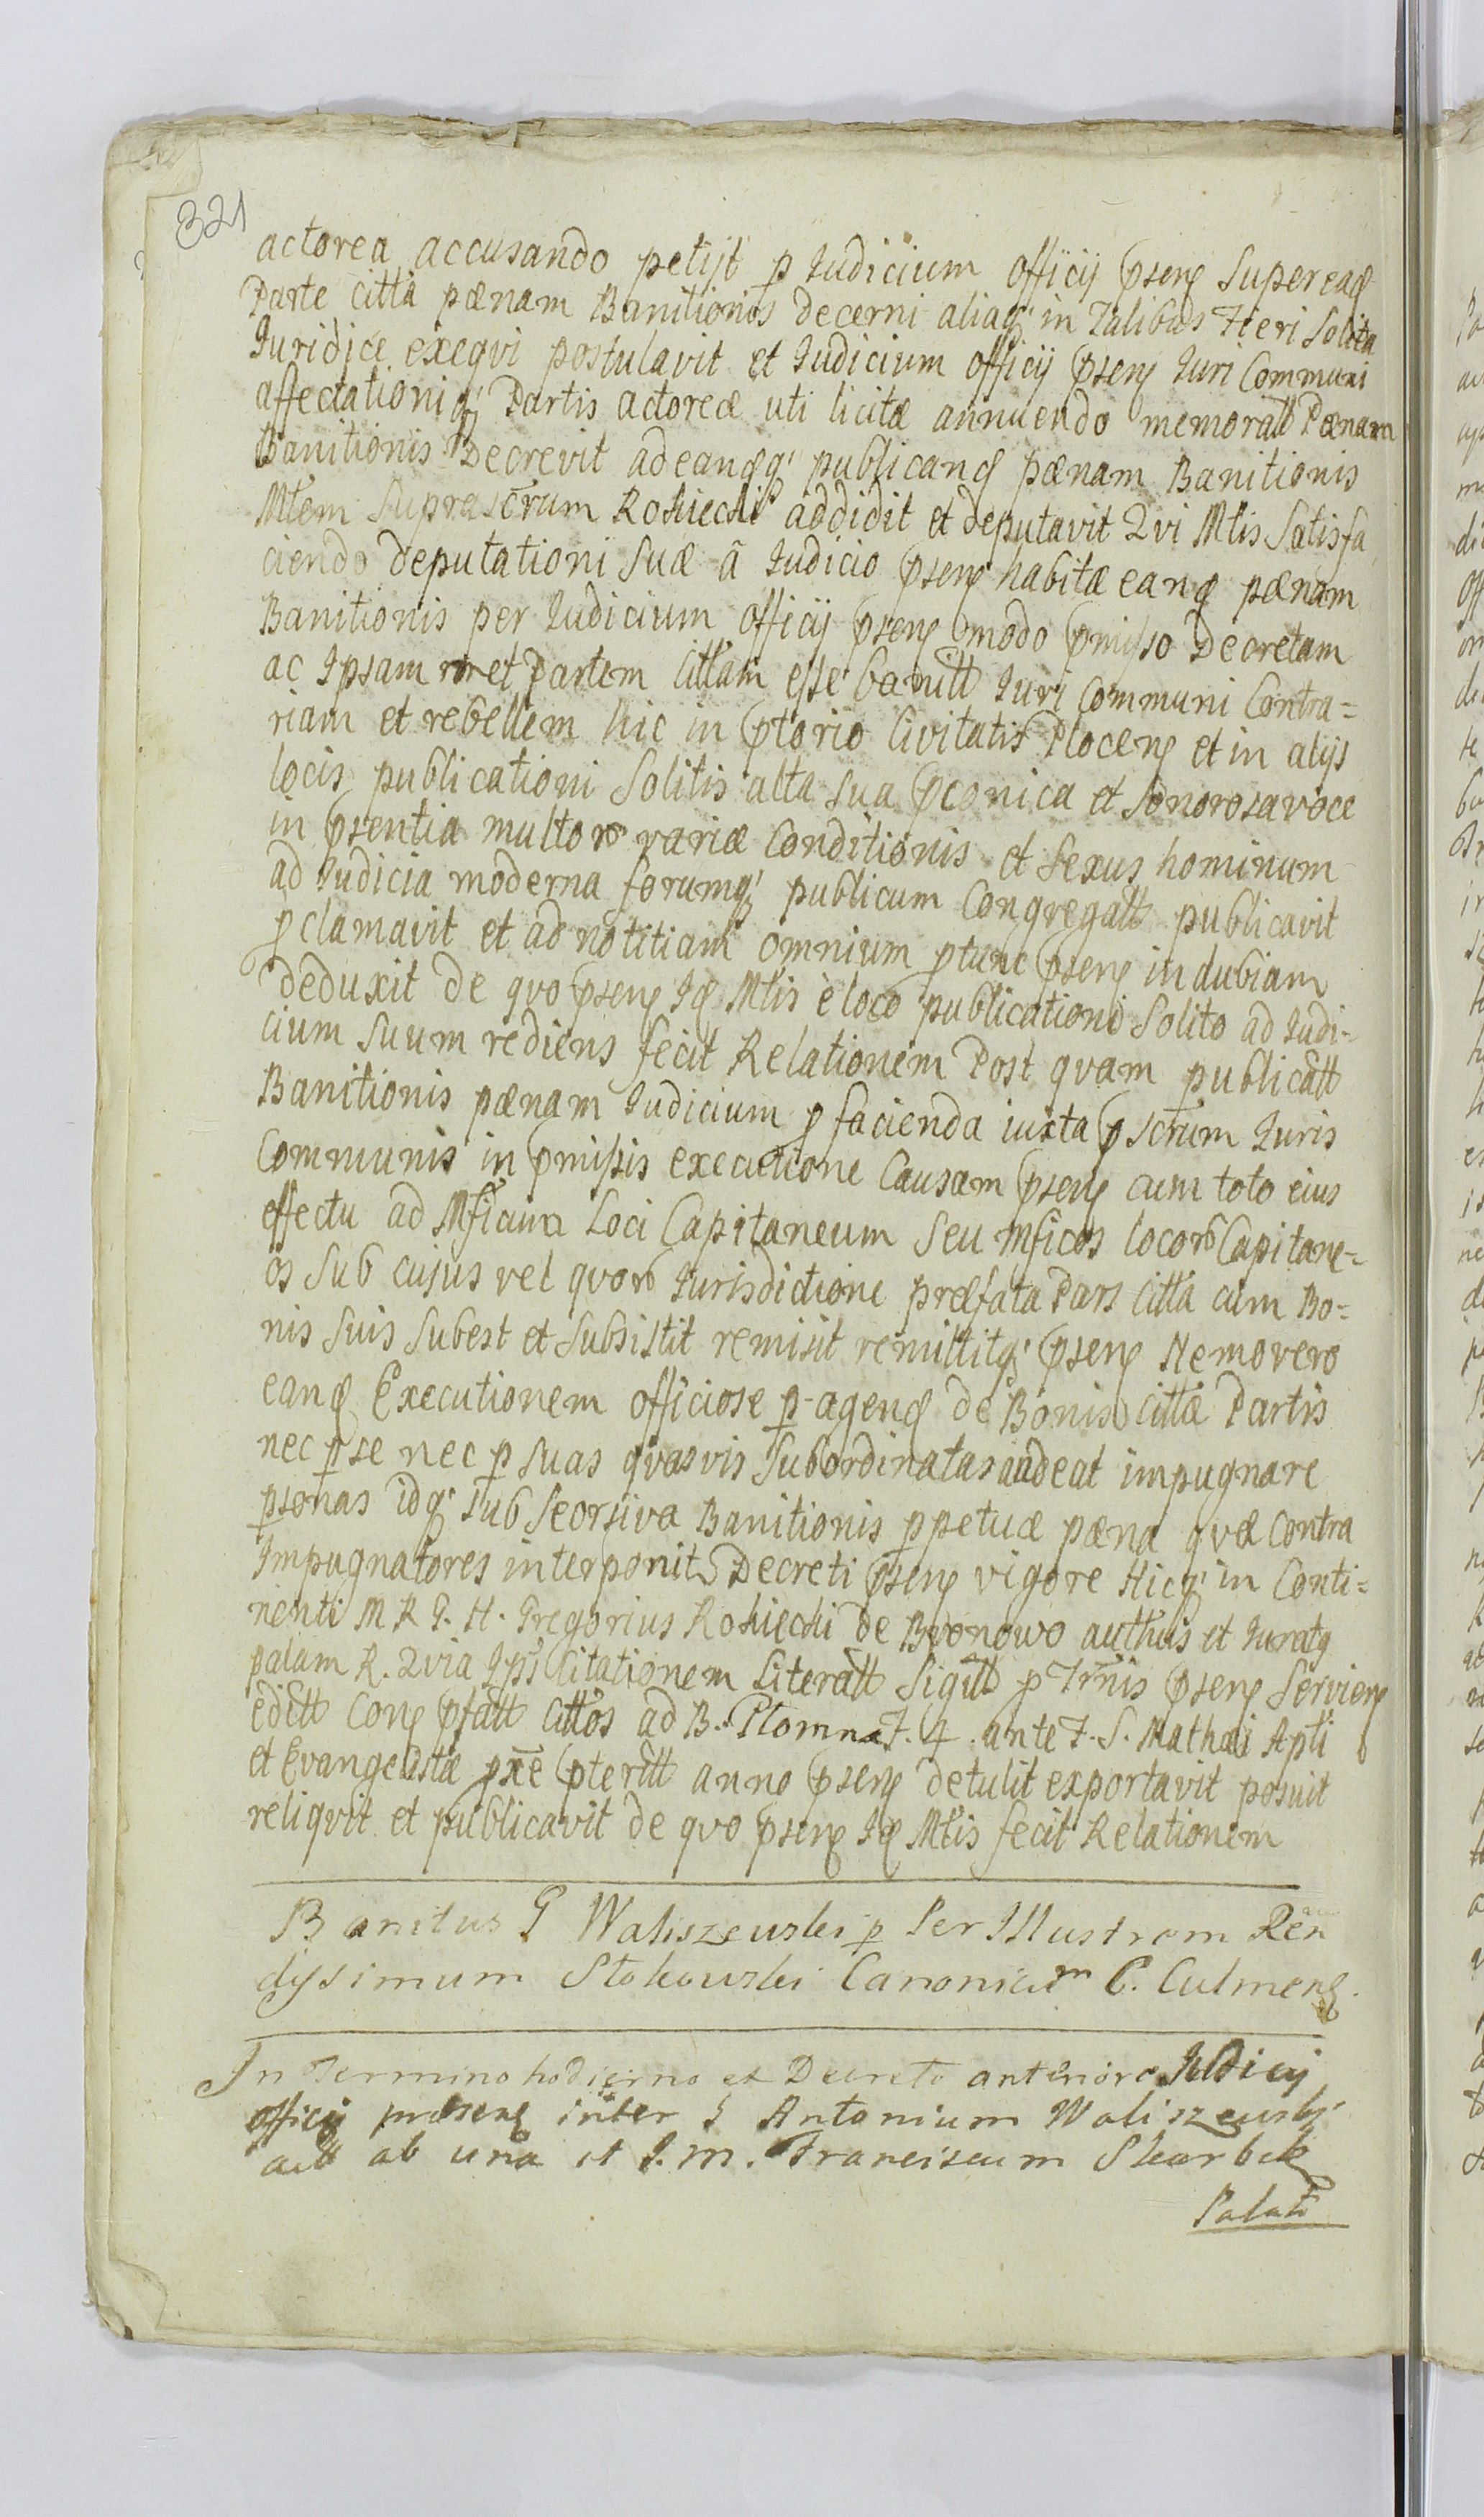 321
actorea accusando petijt p Iudicium officij pseng Super eadē
Parte citta pœnam Banitionis decerni aliaq; in Talibus Fieri Solita
Iuridice exeqvi postulavit et Iudicium officij pseng Iuri Communi
affectationiq; Partis actoreæ uti licitæ annuendo memoratt Pœnam
Banitionis Decrevit ad eandq; publicand pœnam Banitionis
Mtem Suprascrum Rokiecki addidit et deputavit Qvi Mtis Satisfa
ciendo deputationi Suæ ã Iudicio pseng habitæ eand pœnam
Banitionis per Iudicium officij pseng modo pmisso Decretam
ac Ipsam met Partem Cittam esse banitt Iuri Communi Contra=
riam et rebellem hic in ptorio Civitatis Ploceng et in alijs
locis publicationi Solitis alta sua pconica et Sonorosa voce
in psentia multor variæ Conditionis et Sexus hominum
ad Iudicia moderna forumq; publicum Congregatt publicavit
pclamavit et ad notitiam omnium ptunc pseng indubiam
deduxit de qvo pseng Id Mtis è loco publicationi Solito ad Iudi-
cium Suum rediens fecit Relationem Post qvam publicatt
Banitionis pœnam Iudicium p facienda iuxta pscrum Iuris
Communis in pmissis executione Causam pseng cum toto eius
effectu ad Mficum Loci Capitaneum Seu mficos locor Capitane=
os Sub cujus vel qvor Iurisdictione præfata Pars Citta cum Bo=
nis Suis Subest et Subsistit remisit remittitq; pseng Nemo vero
eand Executionem officiose p-agend de Bonis Cittæ Partis
nec p se nec p suas qvasvis Subordinatas audeat impugnare
psonas idq; sub Seorsiva Banitionis ppetuæ pœna qvæ Contra
Impugnatores interponit Decreti pseng vigore Hicq; in Conti=
nenti M R T. H. Gregorius Rokiecki de Bronowo authus et Iuratg
palam R. Qvia Ipse Citationem Literatt Sigitt p Trnis pseng Servieng
editt Cong pfatt Cittos ad B. Plomna F. 4 ante F. S. Mathæi Apti
et Evangelistæ pxe pteritt anno pseng detulit exportavit posuit
reliqvit et publicavit de qvo pseng Id Mtis fecit Relationem
Banitus G Waliszewski p Per Illustrem Ren
dissimum Stokowski Canonicum C. Culmeng.
In Termino hodierno ex Decreto anteriore Iudicij
officij præseng inter G Antonium Waliszewski
actt ab una et G. M. Franciscum Skarbek
Palati